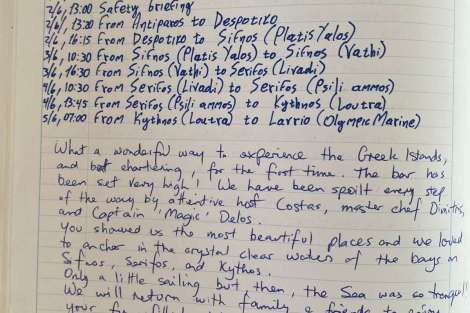 2/6, 13:00 Safety briefing
2/6, 13:20 From Antiparos to Despotiko
2/6, 16:15 From Despotiko to Sifnos (Platis Yalos)
3/6, 10:30 From Sifnos (Platis Yalos) to Sifnos (Vathi)
3/6, 16:30 From Sifnos (Vathi) to Serifos (Livadi)
4/6, 10:30 From Serifos (Livadi) to Serifos (Psili ammos)
4/6, 13:45 From Serifos (Psili ammos) to Kythnos (Loutra)
5/6, 07:00 From Kythnos (Loutra) to Lavrio (Olympic Marine)
What a wonderful way to experience the Greek Islands,
and boat chartering, for the first time. The bar has
been set very high! We have been spoilt every step
of the way by attentive host Costas, master chef Dimitris,
and Captain 'Magic' Delos.
You showed us the most beautiful places and we loved
to anchor in the crystal clear water of the bays on
Sifnos, Serifos, and Kythos.
Only a little sailing but then, the Sea was so tranquil!
We will return with family & friends to enjoy
your fun filled